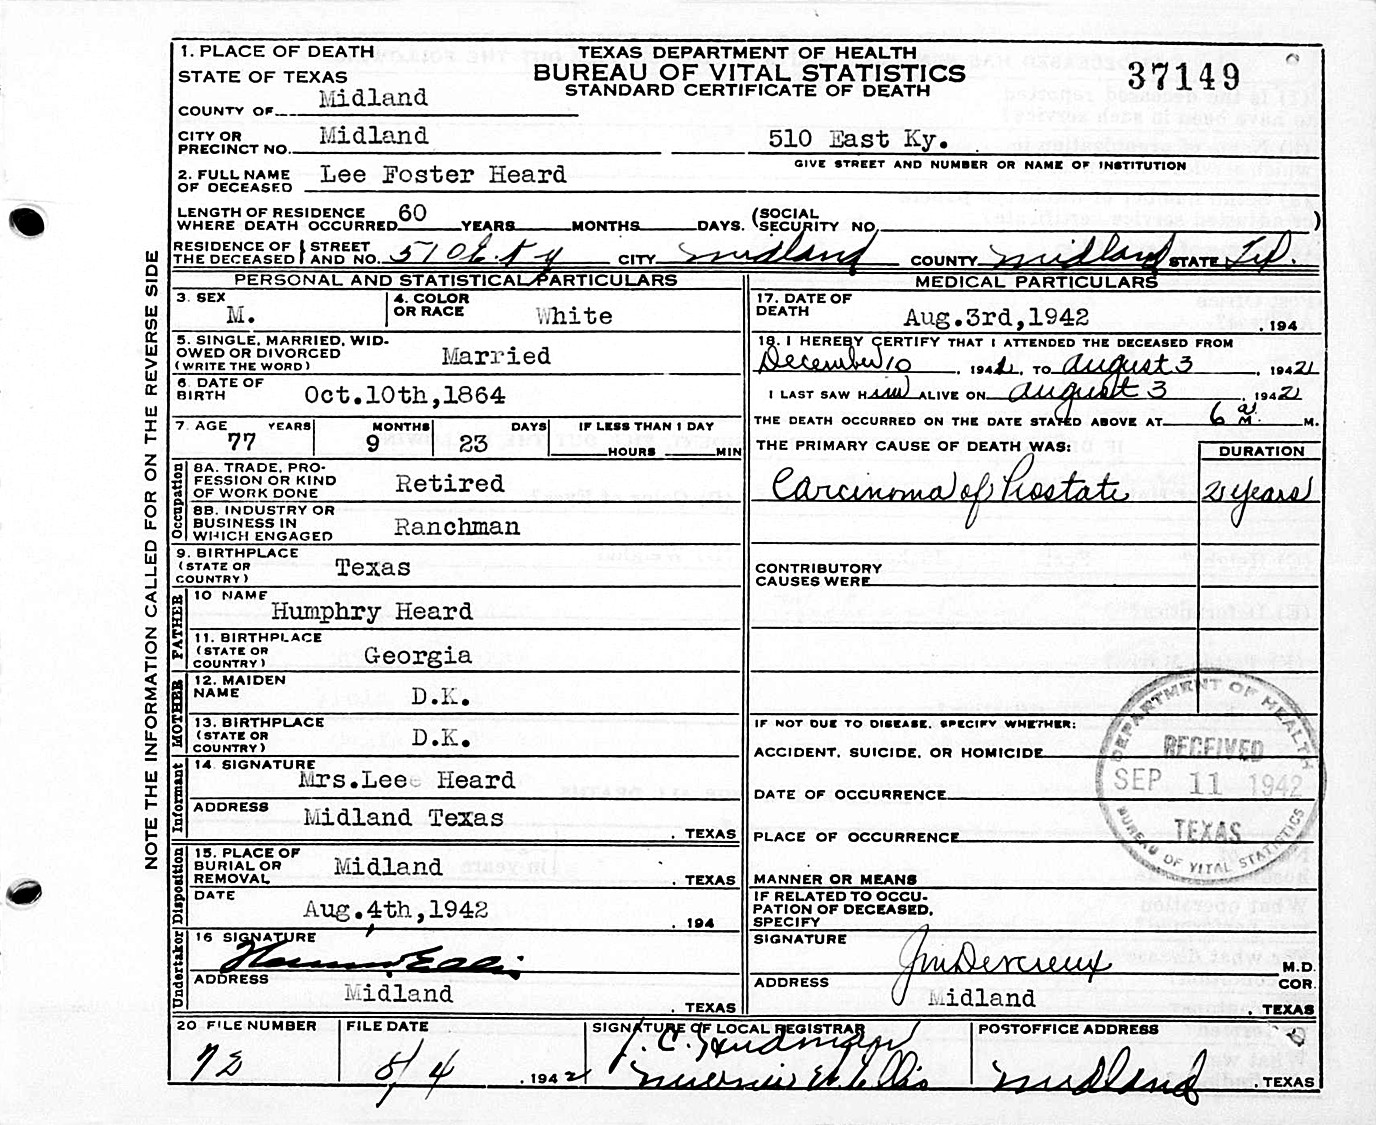 1. PLACE OF DEATH
STATE OF TEXAS
COUNTY OF Midland
TEXAS DEPARTMENT OF HEALTH
BUREAU OF VITAL STATISTICS
STANDARD CERTIFICATE OF DEATH
37149
CITY OR
PRECINCT NO. Midland
510 East Ky.
GIVE STREET AND NUMBER OR NAME OF INSTITUTION
2. FULL NAME
OF DECEASED Lee Foster Heard
LENGTH OF RESIDENCE
WHERE DEATH OCCURRED 60 YEARS MONTHS DAYS. (SOCIAL
SECURITY NO. )
RESIDENCE OF STREET
THE DECEASED AND NO. 510 E. Ky CITY Midland COUNTY Midland STATE Tex.
NOTE THE INFORMATION CALLED FOR ON THE REVERSE SIDE
PERSONAL AND STATISTICAL PARTICULARS
3. SEX
M.
4. COLOR
OR RACE White
5. SINGLE, MARRIED, WID-
OWED OR DIVORCED
(WRITE THE WORD) Married
6. DATE OF
BIRTH Oct.10th,1864
7. AGE YEARS MONTHS DAYS IF LESS THAN 1 DAY
77 9 23 HOURS MIN
Occupation
8A. TRADE, PRO-
FESSION OR KIND
OF WORK DONE Retired
8B. INDUSTRY OR
BUSINESS IN
WHICH ENGAGED Ranchman
9. BIRTHPLACE
(STATE OR
COUNTRY) Texas
FATHER
10 NAME
Humphry Heard
11. BIRTHPLACE
(STATE OR
COUNTRY) Georgia
MOTHER
12. MAIDEN
NAME D.K.
13. BIRTHPLACE
(STATE OR
COUNTRY) D.K.
Informant
14. SIGNATURE
Mrs.Lee Heard
ADDRESS
Midland Texas . TEXAS
Disposition
15. PLACE OF
BURIAL OR
REMOVAL Midland . TEXAS
DATE
Aug.4th,1942 . 194
Undertaker
16 SIGNATURE
Ellis
ADDRESS
Midland . TEXAS
MEDICAL PARTICULARS
17. DATE OF
DEATH Aug.3rd,1942 . 194
18. I HEREBY CERTIFY THAT I ATTENDED THE DECEASED FROM
December 10 , 1941, TO August 3 , 1942
I LAST SAW Him ALIVE ON August 3 , 1942
THE DEATH OCCURRED ON THE DATE STATED ABOVE AT 6 a. M. M.
THE PRIMARY CAUSE OF DEATH WAS: DURATION
Carcinoma of Prostate 2 years
CONTRIBUTORY
CAUSES WERE
IF NOT DUE TO DISEASE, SPECIFY WHETHER:
ACCIDENT, SUICIDE, OR HOMICIDE
DATE OF OCCURRENCE
PLACE OF OCCURRENCE
MANNER OR MEANS
IF RELATED TO OCCU-
PATION OF DECEASED,
SPECIFY
DEPARTMENT OF HEALTH
RECEIVED
SEP 11 1942
TEXAS
BUREAU OF VITAL STATISTICS
SIGNATURE
Jno Devereux M.D.
ADDRESS COR.
Midland . TEXAS
20 FILE NUMBER
72
FILE DATE
8/4 . 1942
SIGNATURE OF LOCAL REGISTRAR
J. C. Hudman
Ellis
POSTOFFICE ADDRESS
Midland . TEXAS